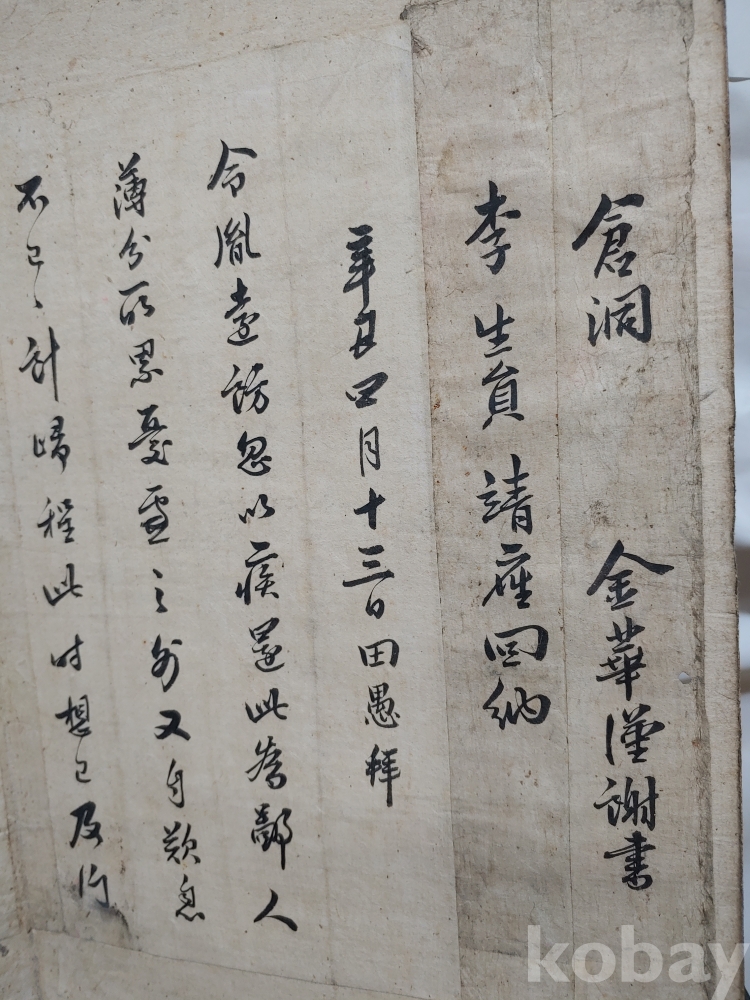 倉洞 金華謹謝書
李生員 請座回納
辛丑四月十三日田愚拜
令胤遠訪忽以疾還此爲鄙人
薄分所累憂慮之外又自歎息
不已〻計歸程此時想已及
kobay